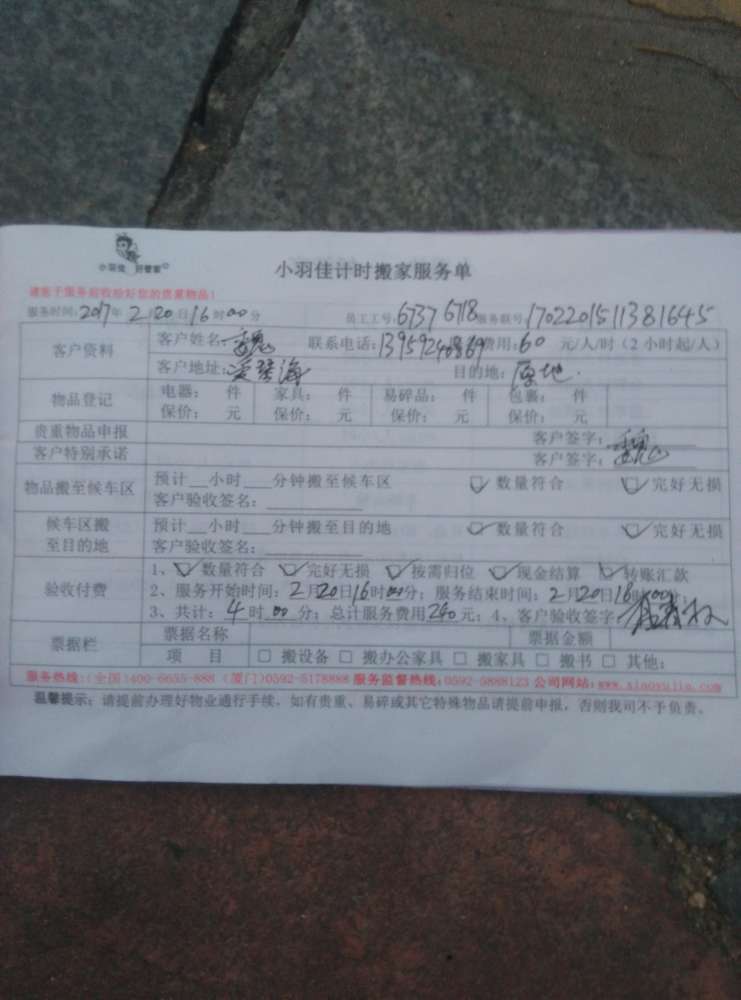 小羽佳 好管家
小羽佳计时搬家服务单
请客于服务前收拾好您的贵重物品！
服务时间: 2017年 2月20日 16时00分 员工工号: 6737 6718 服务联号: 1702201511381645
客户资料 客户姓名: 魏 联系电话: 费用: 60 元/人/时 (2小时起/人)
客户地址: 目的地: 原地
物品登记 电器: 件 家具: 件 易碎品: 件 包裹: 件
保价: 元 保价: 元 保价: 元 保价: 元
贵重物品申报 客户签字:
客户特别承诺 客户签字: 魏
物品搬至候车区 预计__小时___分钟搬至候车区 数量符合 完好无损
客户验收签名:
候车区搬至目的地 预计__小时___分钟搬至目的地 数量符合 完好无损
客户验收签名:
验收付费 1、 数量符合 完好无损 按需归位 现金结算 转账汇款
2、服务开始时间: 2月20日16时00分; 服务结束时间: 2月20日16时
3、共计: 4时00分; 总计服务费用240元; 4、客户验收签字:
票据栏 票据名称 票据金额
项 目 □ 搬设备 □ 搬办公家具 □ 搬家具 □ 搬书 □ 其他:
服务热线: (全国)400-6655-888 (厦门)0592-5178888 服务监督热线: 0592-5888123 公司网站: www.xiaoyujia.com
温馨提示: 请提前办理好物业通行手续，如有贵重、易碎或其它特殊物品请提前申报，否则我司不予负责。